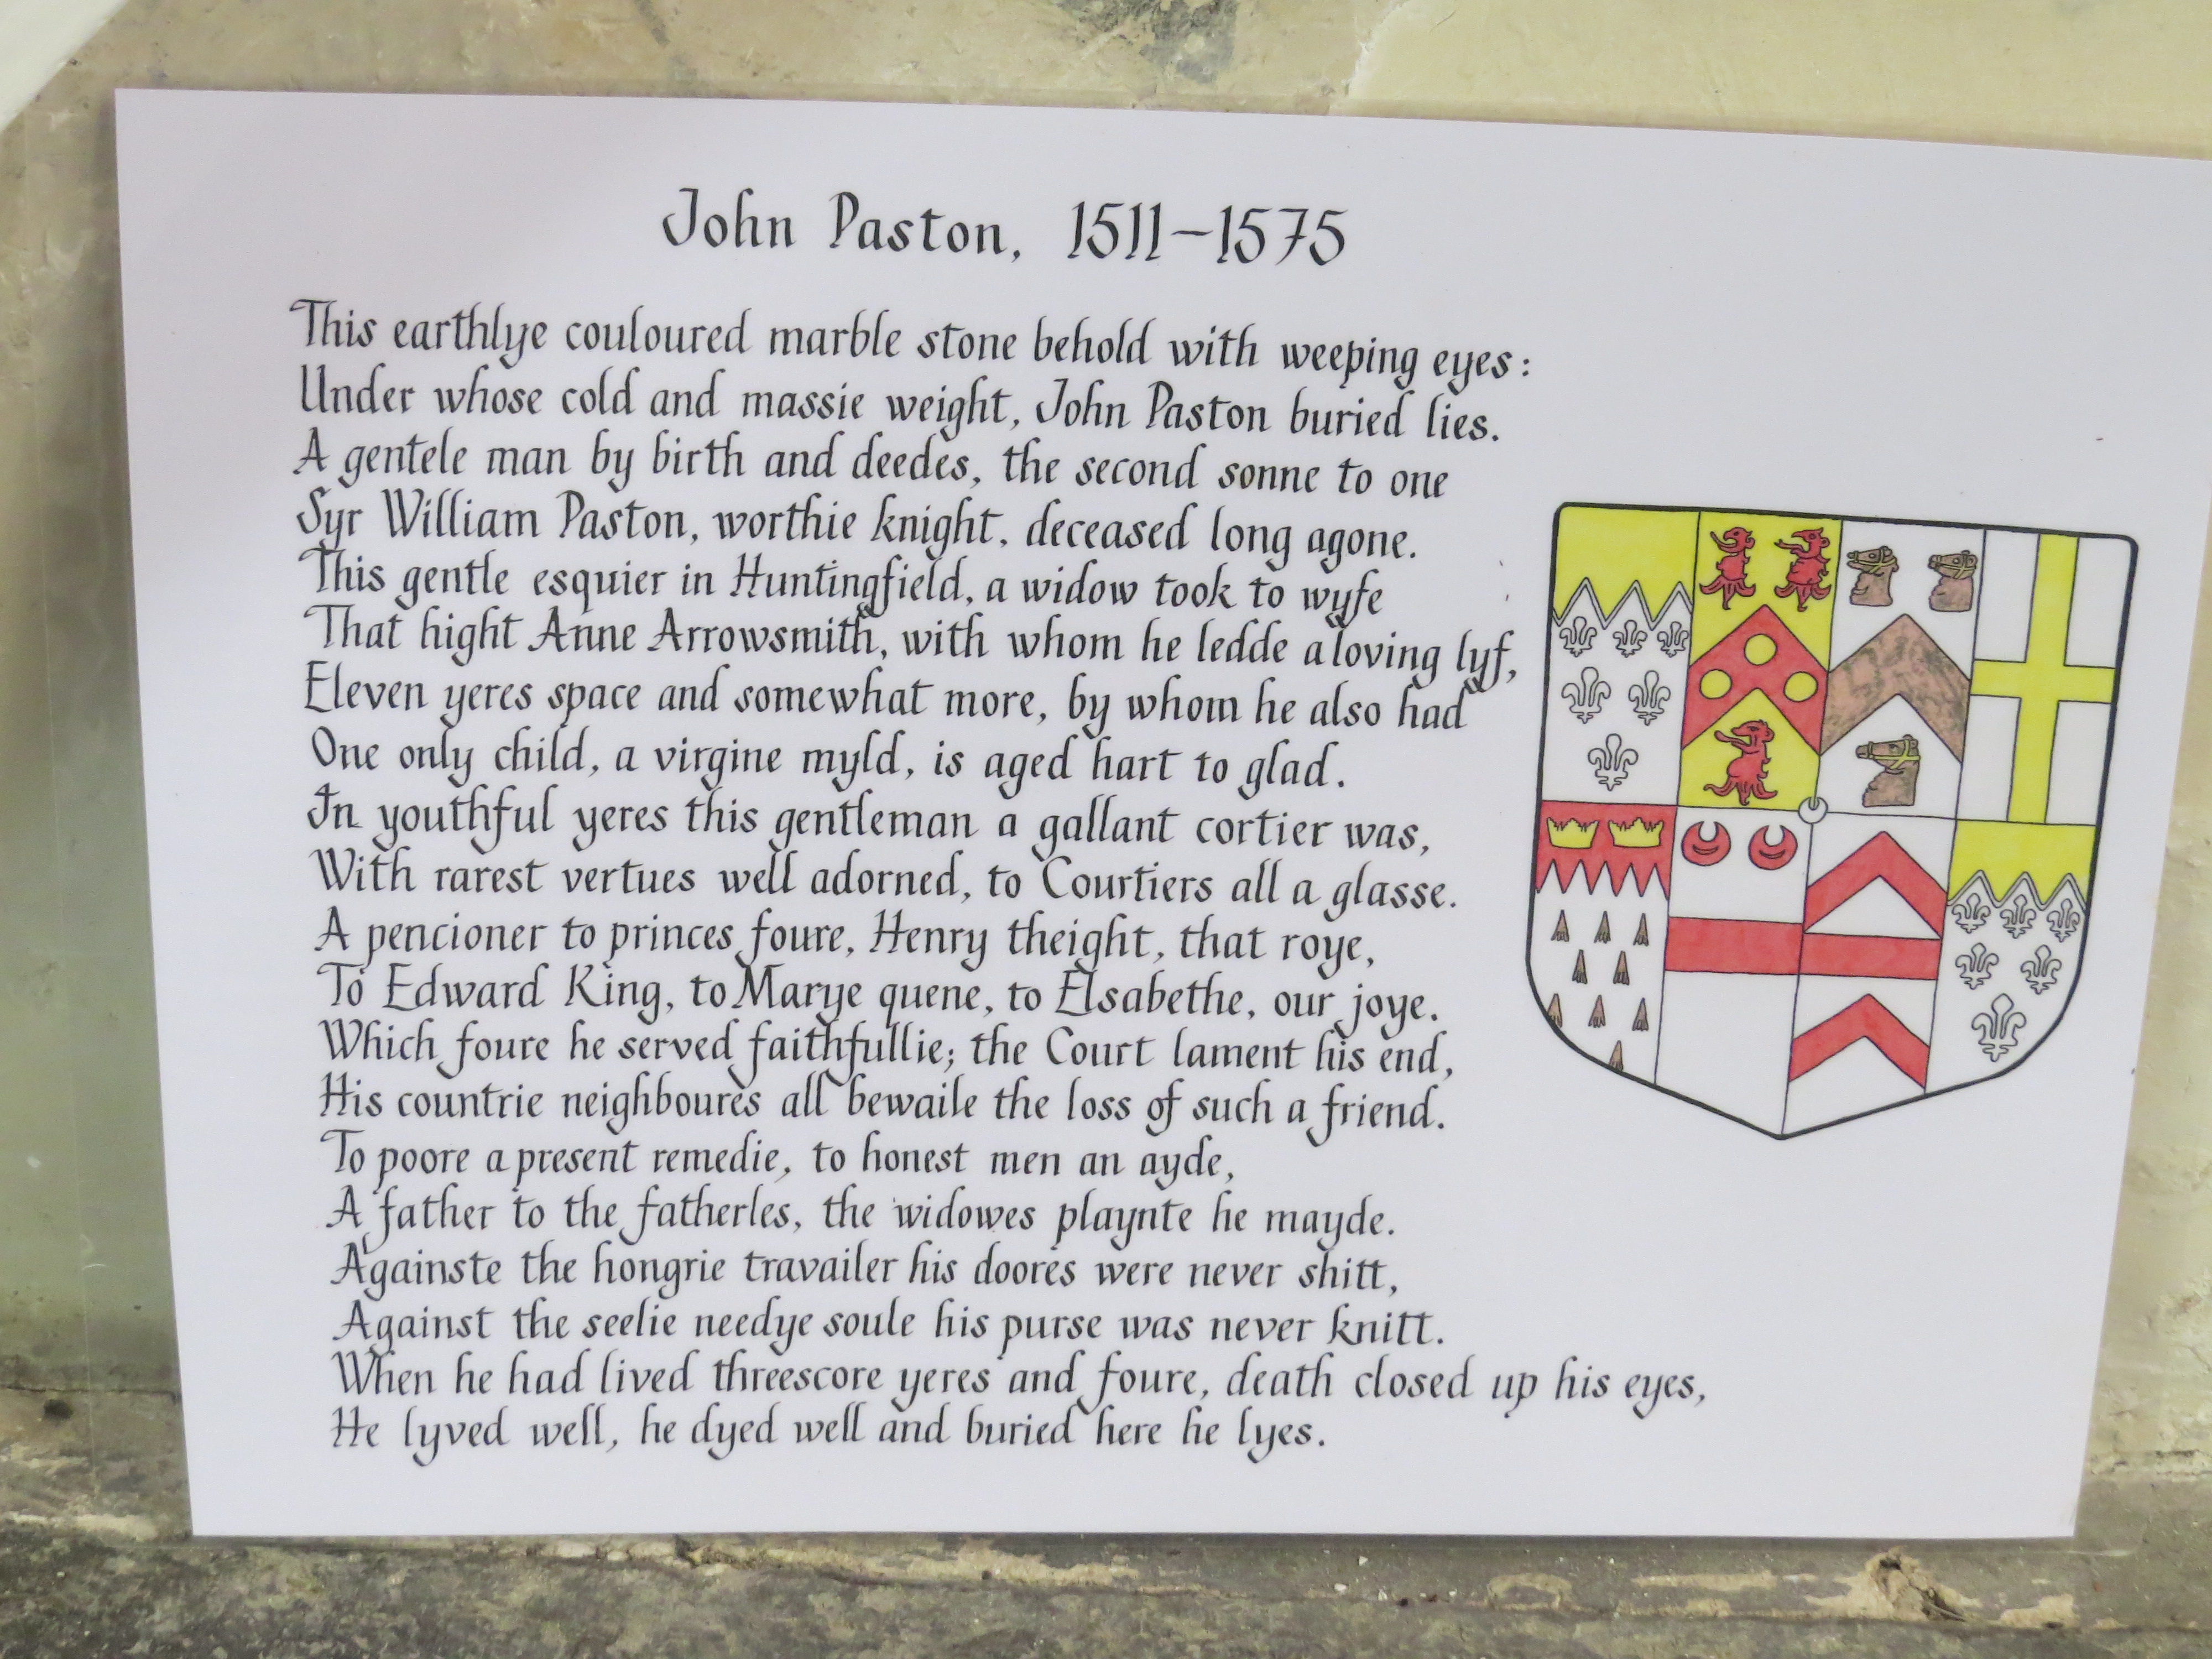 John Paston, 1511–1575
This earthlye couloured marble stone behold with weeping eyes:
Under whose cold and massie weight, John Paston buried lies.
A gentele man by birth and deedes, the second sonne to one
Syr William Paston, worthie knight, deceased long agone.
This gentle esquier in Huntingfield, a widow took to wyfe
That hight Anne Arrowsmith, with whom he ledde a loving lyf,
Eleven yeres space and somewhat more, by whom he also had
One only child, a virgine myld, is aged hart to glad.
In youthful yeres this gentleman a gallant cortier was,
With rarest vertues well adorned, to Courtiers all a glasse.
A pencioner to princes foure, Henry theight, that roye,
To Edward King, to Marye quene, to Elsabethe, our joye.
Which foure he served faithfullie; the Court lament his end,
His countrie neighboures all bewaile the loss of such a friend.
To poore a present remedie, to honest men an ayde,
A father to the fatherles, the widowes playnte he mayde.
Againste the hongrie travailer his doores were never shitt,
Against the seelie needye soule his purse was never knitt.
When he had lived threescore yeres and foure, death closed up his eyes,
He lyved well, he dyed well and buried here he lyes.